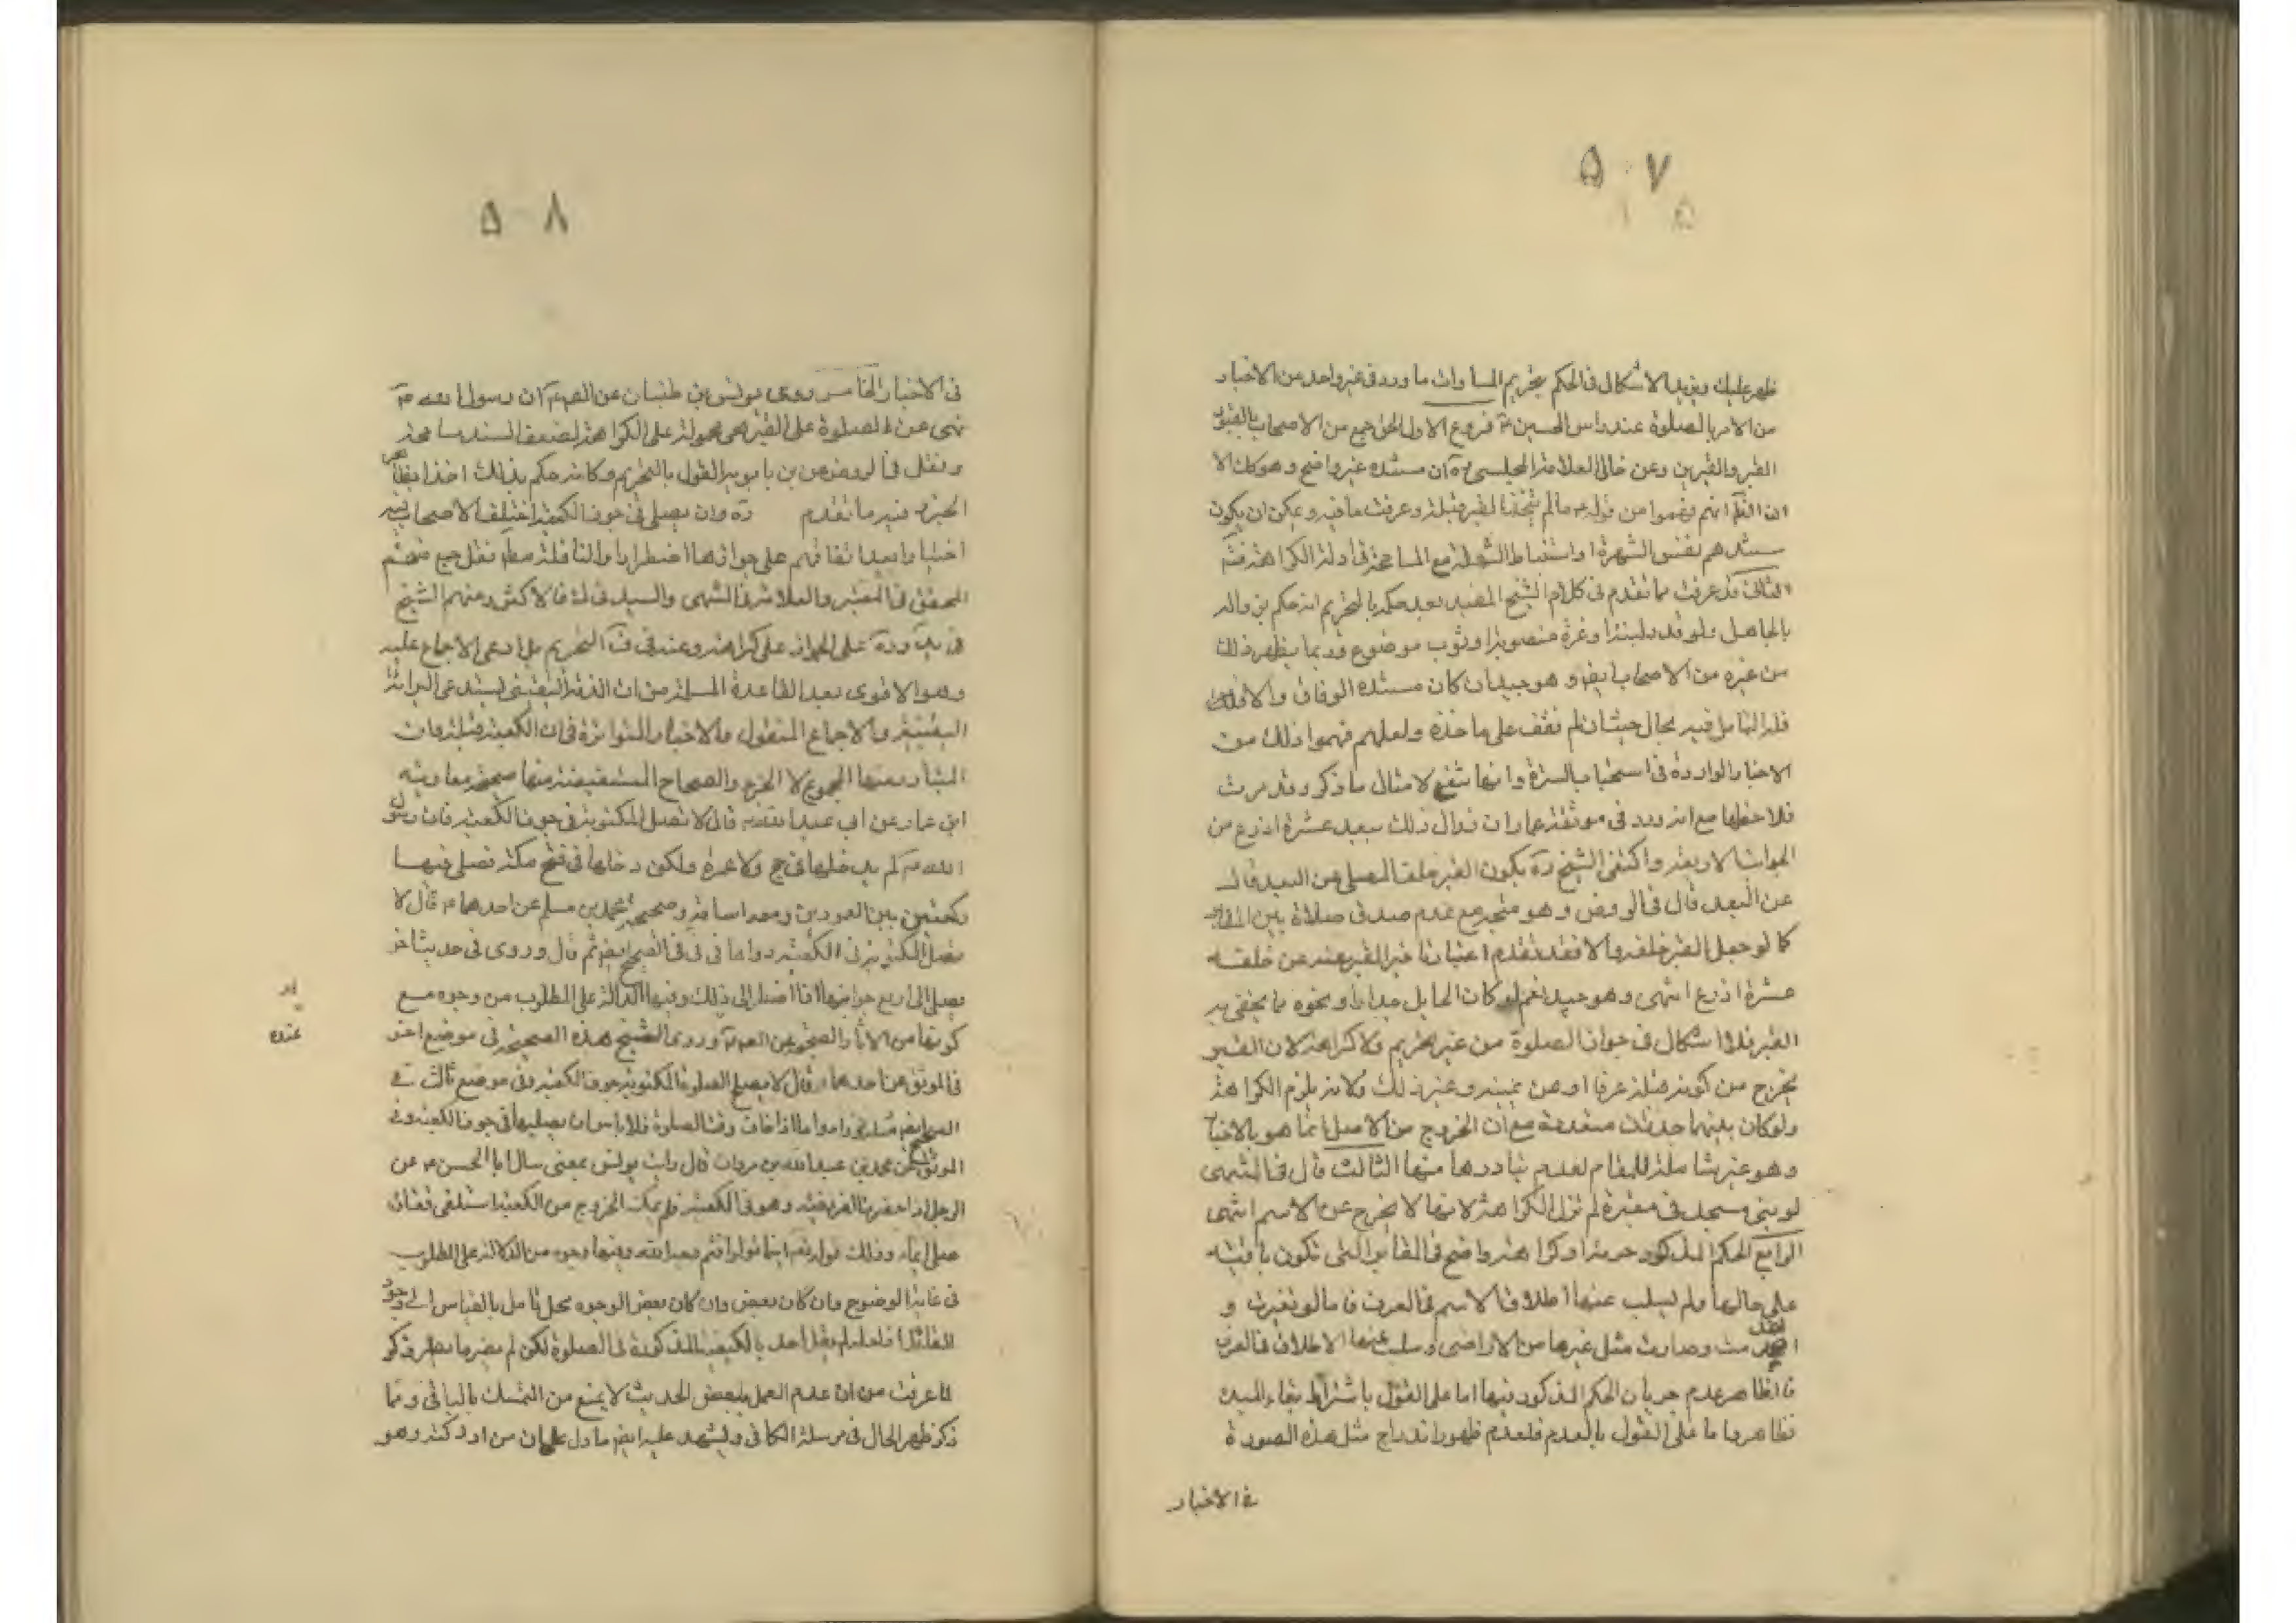 ۵۰۷
ظهر عليك ويزيد الاشكال في الحكم بتحريم المساوات ما ورد في غير واحد من الاخبار
من الامر بالصلوة عند راس الحسين ع فروع الاول الحق جمع من الاصحاب بالقبور
القبر والقبرين وعن خالي العلامة المجلسي ره ان مستنده غير واضح وهو كك الا
ان انهم فهموا من قوله ع ما لم يتخذ القبر قبلة وعرفت ما فيه ويمكن ان يكون
مستندهم نفس الشهرة او استنباط الشهرة مع المسامحة في ادلة الكراهة فتم
الثاني قد عرفت مما تقدم في كلام الشيخ المفيد بعد حكمه بالتحريم انه حكم بزواله
بالحائل ولو قدر لبنة او عنزة منصوبة او ثوب موضوع وربما يظهر ذلك
من غيره من الاصحاب ايضا وهو جيد ان كان مستنده الوفاق والا
فللتامل فيه مجال حيث لم نقف على ماخذه ولعلهم فهموا ذلك من
الاخبار الواردة في استحباب السترة وانها تقع لامثال ما ذكر وقد مرت
فلاحظها مع انه ورد في موثقة عمار ان زوال ذلك ببعد عشرة اذرع من
الجوانب الاربعة واكتفى الشيخ ره بكون القبر خلف المصلي عن البعد قال
عن البعد قال في الروض وهو متجه مع عدم صدق صلاة بين المقابر
كما لو جعل القبر خلفه والا فقد تقدم اعتبار تاخر القبر عنه عن خلفه
عشرة اذرع انتهى وهو جيد نعم لو كان الحايل جدارا ونحوه مما يخفى به
القبر فلا اشكال في جواز الصلوة من غير تحريم ولا كراهة لان القبر
يخرج من كونه قبلة عرفا او عن يمينه وغير ذلك ولانه يلزم الكراهة
ولو كان بينهما حديث متعددة مع ان الخروج من الاصل انما هو بالاخبار
وهو غير شاملة للمقام لعدم تبادرها منها الثالث قال في المنتهى
لو بني مسجد في مقبرة لم تزل الكراهة لانها لا يخرج عن الاسم انتهى
الرابع الحكم المذكور حرمة او كراهة واضح في المقابر التي تكون باقية
على حالها ولم يسلب عنها اطلاق الاسم في العرف فاما لو تغيرت و
انهدمت وصارت مثل غيرها من الاراضي وسلب عنها الاطلاق في العرف
فالظاهر عدم جريان الحكم المذكور فيها اما على القول باشتراط بقاء المبدء
فظاهر واما على القول بالعدم فلعدم ظهور اندراج مثل هذه الصورة
في الاخبار
۵۰۸
في الاخبار الخامس روى يونس بن ظبيان عن الصم ع ان رسول الله ص
نهى عن الصلوة على القبر هي محمولة على الكراهة لضعف السند مسامحة
ونقل في الروض عن بن بابويه القول بالتحريم وكانه حكم بذلك اخذا بظاهر
الخبر وفيه ما تقدم ره وان يصلي في جوف الكعبة اختلف الاصحاب فيه
اختيارا بعد اتفاقهم على جوازها اضطرارا والنافلة مطلقا نقل جمع منهم
المحقق في المعتبر والعلامة في المنتهى والسيد في ك فالاكثر ومنهم الشيخ
في يه وره على الجواز على كراهة وعنه في ف التحريم بل ادعى الاجماع عليه
وهو الاقوى بعد القاعدة المسلمة من ان الذمة اليقيني يستدعي البرائة
اليقينية والاجماع المنقول والاخبار المتواترة في ان الكعبة قبلة فان
المتبادر منها المجموع لا الجزء والصحاح المستفيضة منها صحيحة معاوية
ابن عمار عن ابي عبد الله ع قال لا تصل المكتوبة في جوف الكعبة فان رسول
الله ص لم يدخلها في حج ولا عمرة ولكن دخلها في فتح مكة فصلى فيها
ركعتين بين العمودين ومعه اسامة وصحيحة محمد بن مسلم عن احدهما ع قال لا
تصل المكتوبة في الكعبة رواها في في في الصحيح ايضا ثم قال وروى في حديث اخر
يصلي الى اربع جوانبها اذا اضطر الى ذلك وفيها الدلالة على المطلوب من وجوه مع
كونها من الاثار الصحيحة عن الصم ع وروى الشيخ هذه الصحيحة في موضع اخر
في الموثق عن احدهما ع قال لا يصلح الصلوة المكتوبة جوف الكعبة وفي موضع ثالث في
الصحيح ايضا مثله واما اذا خاف فوت الصلوة فلا باس ان يصليها في جوف الكعبة وفي
الموثق عن محمد بن عبد الله بن مروان قال رايت يونس بمعنى سال ابا الحسن ع عن
الرجل اذا حضرته الفريضة وهو في الكعبة فلم يمكنه الخروج من الكعبة استلقى قفاه
صلى ايماء وذلك قوله تع اينما تولوا فثم وجه الله وفيها وجوه من الدلالة على المطلوب
في غاية الوضوح وان كان بعض وان كان بعض الوجوه محل تامل بالقياس الى وجود
القائل فلعله لم يقل احد بالكيفية المذكورة في الصلوة لكن لم يضر ما نظر وذكر
لما عرفت من ان عدم العمل ببعض الحديث لا يمنع من التمسك بالباقي ومما
ذكر ظهر الحال في مرسلة الكافي ويشهد عليه ايضا ما دل على ان من ادركته وهو